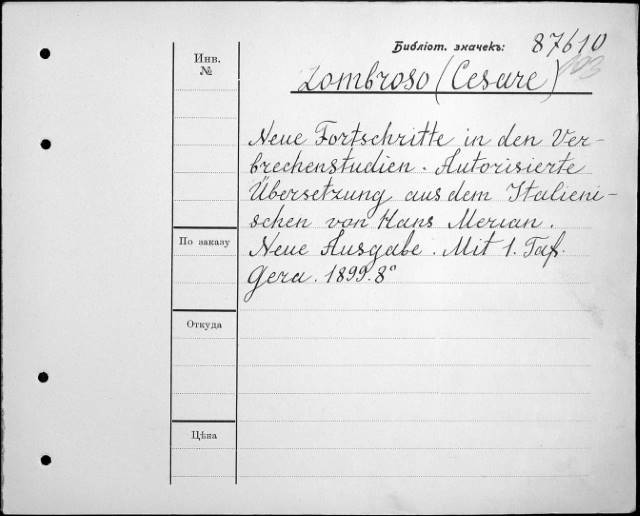 Библіот. значекъ: 87610
Инв.
№
Lombroso (Cesare)
Neue Fortschritte in den Ver-
brechenstudien. Autorisierte
Übersetzung aus dem Italieni-
schen von Hans Merian.
По заказу
Neue Ausgabe. Mit 1. Taf.
Gera. 1899. 8°
Откуда
Цѣна